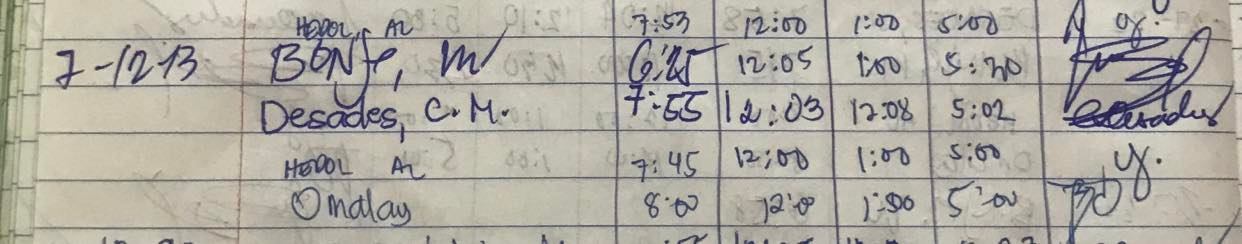 HEDOL, AL 7:53 12:00 1:00 5:00
7-12-13 BONJE, M 6:25 12:05 1:00 5:20
Desades, C.M. 7:55 12:03 12:08 5:02
HEDOL AL 7:45 12:00 1:00 5:00
Omalay 8:00 12:0 1:00 5:00